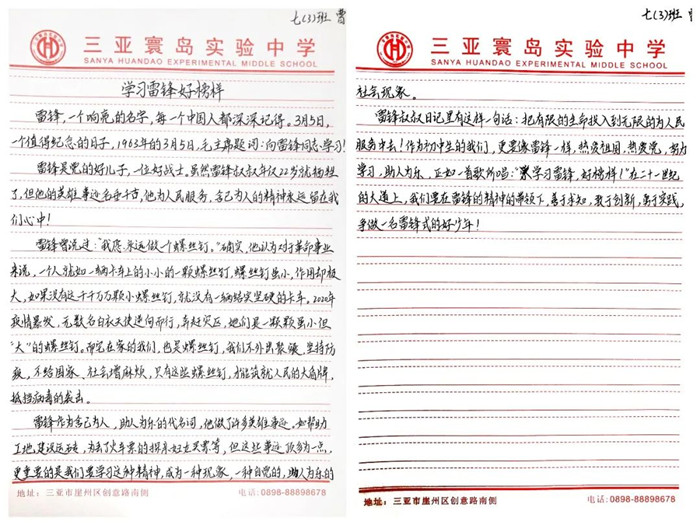 七(3)班 曹
三亚寰岛实验中学
SANYA HUANDAO EXPERIMENTAL MIDDLE SCHOOL
学习雷锋好榜样
雷锋,一个响亮的名字,每一个中国人都深深记得。3月5日,
一个值得纪念的日子,1963年的3月5日,毛主席题词:向雷锋同志学习!
雷锋是党的好儿子,一位好战士,虽然雷锋叔叔年仅22岁就牺牲
了,但他的英雄事迹名垂千古,他为人民服务,舍己为人的精神永远留在我
们心中!
雷锋曾说过:"我愿永远做个螺丝钉。"确实,他认为对于革命事业
来说,一个人就如一辆卡车上的小小的一颗螺丝钉,螺丝钉虽小,作用却极
大,如果没有这千千万万颗小螺丝钉,就没有一辆结实坚硬的卡车。2020年
疫情暴发,无数名白衣天使逆向而行,奔赴灾区,她们是一颗颗虽小但
"大"的螺丝钉。而宅在家的我们,也是螺丝钉,我们不外出聚餐,坚持防
疫,不给国家、社会增麻烦,只有这些螺丝钉,才能筑就人民的大盾牌,
抵挡病毒的袭击。
雷锋作为舍己为人,助人为乐的代名词,他做了许多英雄事迹,如帮助
工地建设运砖,为丢了火车票的妇女买票等,但这些事迹
更重要的是我们要学习这种精神,成为一种现象,一种自觉的,助人为乐的
地址:三亚市崖州区创意路南侧
电话:0898-88898678
七(3)班
三亚寰岛实验中学
SANYA HUANDAO EXPERIMENTAL MIDDLE SCHOOL
社会现象。
雷锋叔叔日记里有这样一句话:把有限的生命投入到无限的为人民
服务中去!作为初中生的我们,更要像雷锋一样,热爱祖国,热爱党,努力
学习,助人为乐,正如一首歌所唱:"学习雷锋,好榜样!"在二十一世纪
的大道上,我们要在雷锋的精神的带领下,善于求知,敢于创新,勇于实践,
争做一名雷锋式的好少年!
地址:三亚市崖州区创意路南侧
电话:0898-88898678